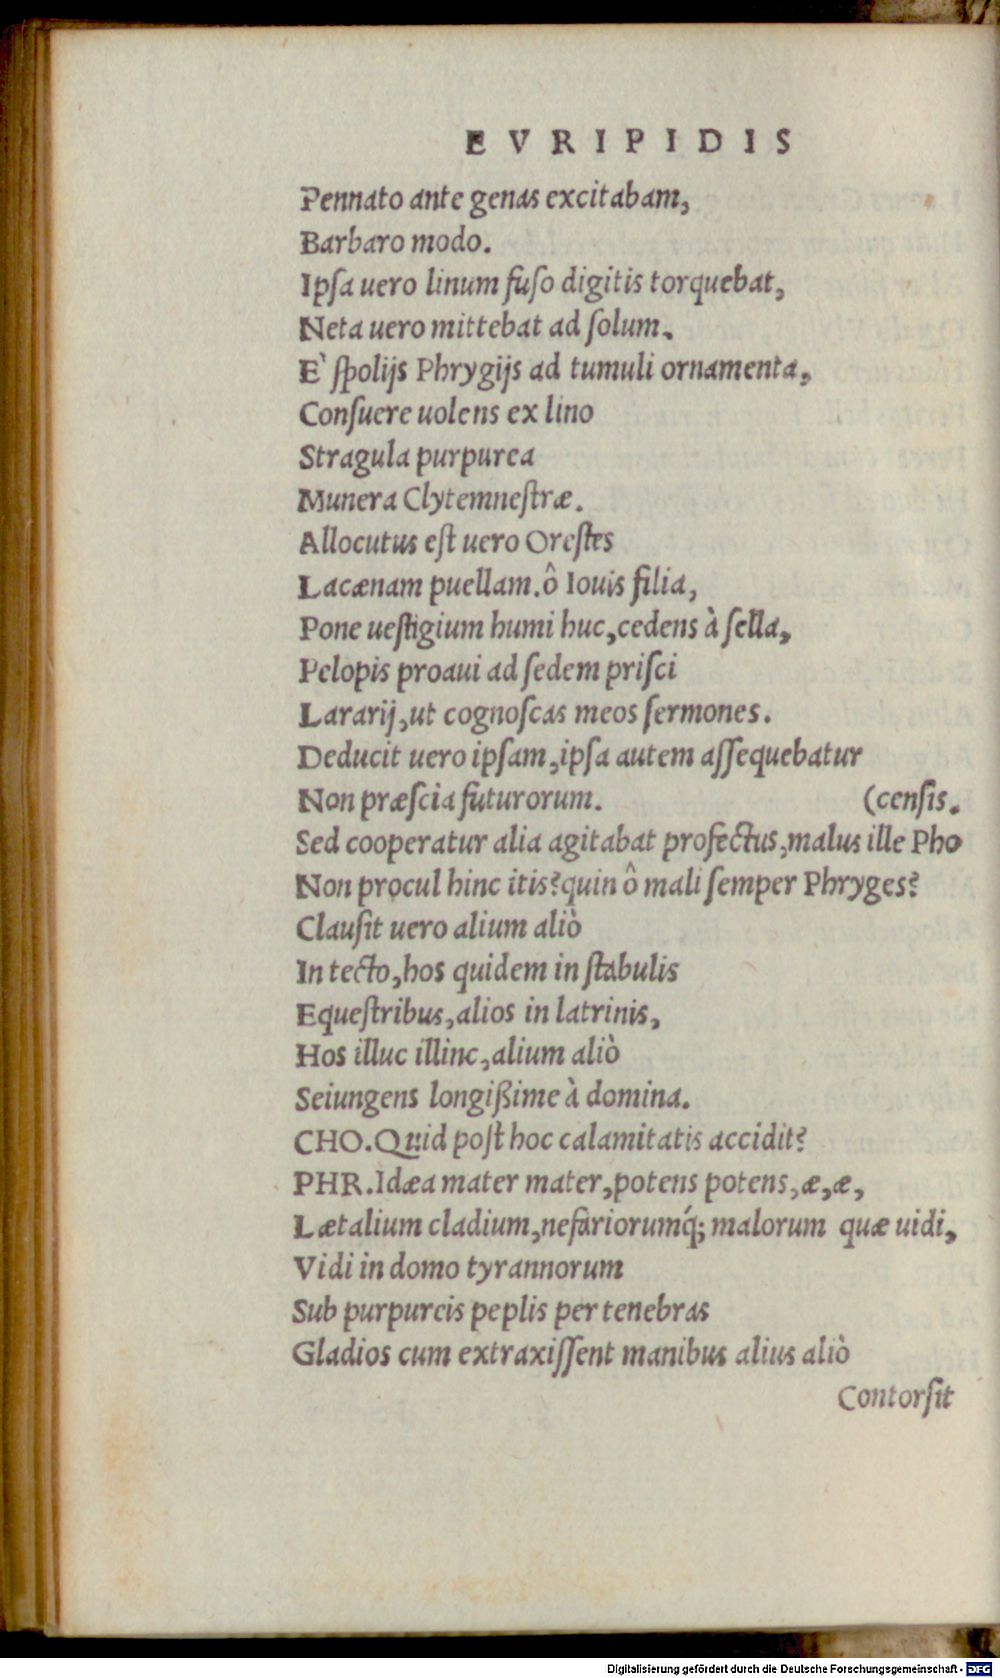 EVRIPIDIS
Pennato ante genas excitabam,
Barbaro modo.
Ipſa uero linum fuſo digitis torquebat,
Neta uero mittebat ad ſolum.
E` ſpolijs Phrygijs ad tumuli ornamenta,
Conſuere uolens ex lino
Stragula purpurea
Munera Clytemneſtræ.
Allocutus eſt uero Oreſtes
Lacænam puellam. ô Iouis filia,
Pone ueſtigium humi huc, cedens à ſella,
Pelopis proaui ad ſedem priſci
Lararij, ut cognoſcas meos ſermones.
Deducit uero ipſam, ipſa autem aſſequebatur
Non præſcia futurorum. (cenſis.
Sed cooperatur alia agitabat profectus, malus ille Pho
Non procul hinc itis? quin ô mali ſemper Phryges?
Clauſit uero alium aliò
In tecto, hos quidem in ſtabulis
Equeſtribus, alios in latrinis,
Hos illuc illinc, alium aliò
Seiungens longißime à domina.
CHO. Quid poſt hoc calamitatis accidit?
PHR. Idæa mater mater, potens potens, æ, æ,
Lætalium cladium, nefariorumq́; malorum quæ uidi,
Vidi in domo tyrannorum
Sub purpureis peplis per tenebras
Gladios cum extraxiſſent manibus alius aliò
Contorſit
Digitalisierung gefördert durch die Deutsche Forschungsgemeinschaft - DFG